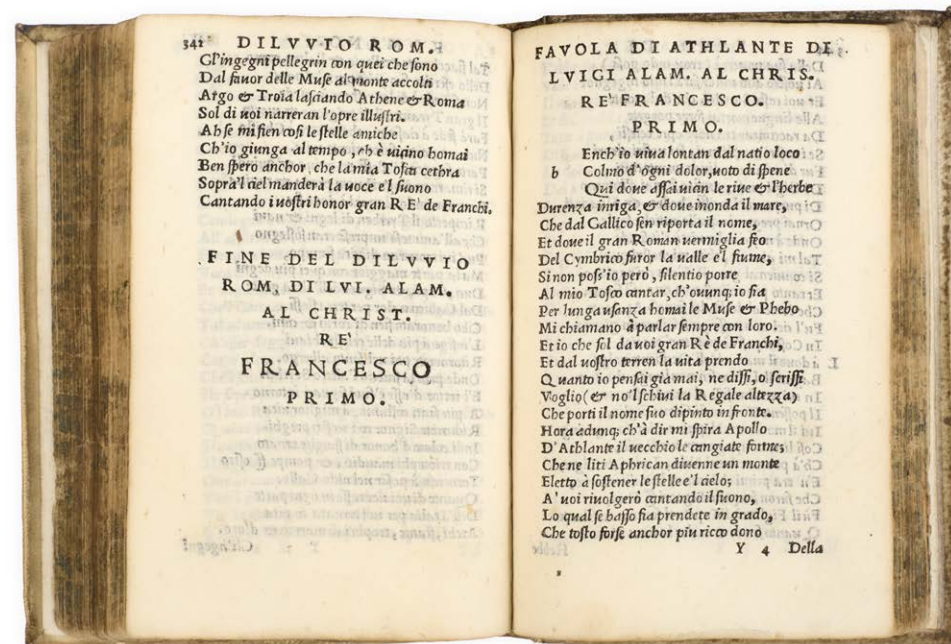 342 DILVVIO ROM.
Gl'ingegni pellegrin con quei che sono
Dal fauor delle Muse al monte accolti
Argo & Troia lasciando Athene & Roma
Sol di uoi narreran l'opre illustri.
Ah se mi sien cosi le stelle amiche
Ch'io giunga al tempo, ch è uicino homai
Ben spero anchor, che la mia Tosca cethra
Sopra'l ciel manderà la uoce e'l suono
Cantando i uostri honor gran RE' de Franchi.
FINE DEL DILVVIO
ROM. DI LVI. ALAM.
AL CHRIST.
RE'
FRANCESCO
PRIMO.
FAVOLA DI ATHLANTE DE
LVIGI ALAM. AL CHRIS.
RE' FRANCESCO.
PRIMO.
Ench'io uiua lontan dal natio loco
b Colmo d'ogni dolor, uoto di spene
Qui doue assai uicin le riue & l'herbe
Durenza inriga, & doue inonda il mare,
Che dal Gallico sen riporta il nome,
Et doue il gran Roman uermiglia feo
Del Cymbrico furor la ualle e'l fiume,
Si non poss'io però, silentio porre
Al mio Tosco cantar, ch'ouunq; io sia
Per lunga usanza homai le Muse & Phebo
Mi chiamano à parlar sempre con loro.
Et io che sol da uoi gran Rè de Franchi,
Et dal uostro terren la uita prendo
Quanto io pensai gia mai, ne dissi, o scrissi
Voglio (& no'l schiui la Regale altezza)
Che porti il nome suo dipinto in fronte.
Hora adunq; ch'à dir mi spira Apollo
D'Athlante il uecchio le cangiate forme,
Che ne liti Aphrican diuenne un monte
Eletto à sostener le stelle e'l cielo;
A' uoi riuolgerò cantando il suono,
Lo qual se basso fia prendete in grado,
Che tosto forse anchor piu ricco dono
Y 4 Della